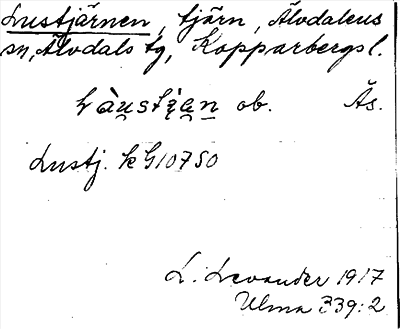 Lustjärnen, tjärn, Älvdalens
sn, Älvdals tg, Kopparbergs l.
Làustįęn ob. Ås.
Lustj. k G10750
L. Levander 1917
Ulma 339:2